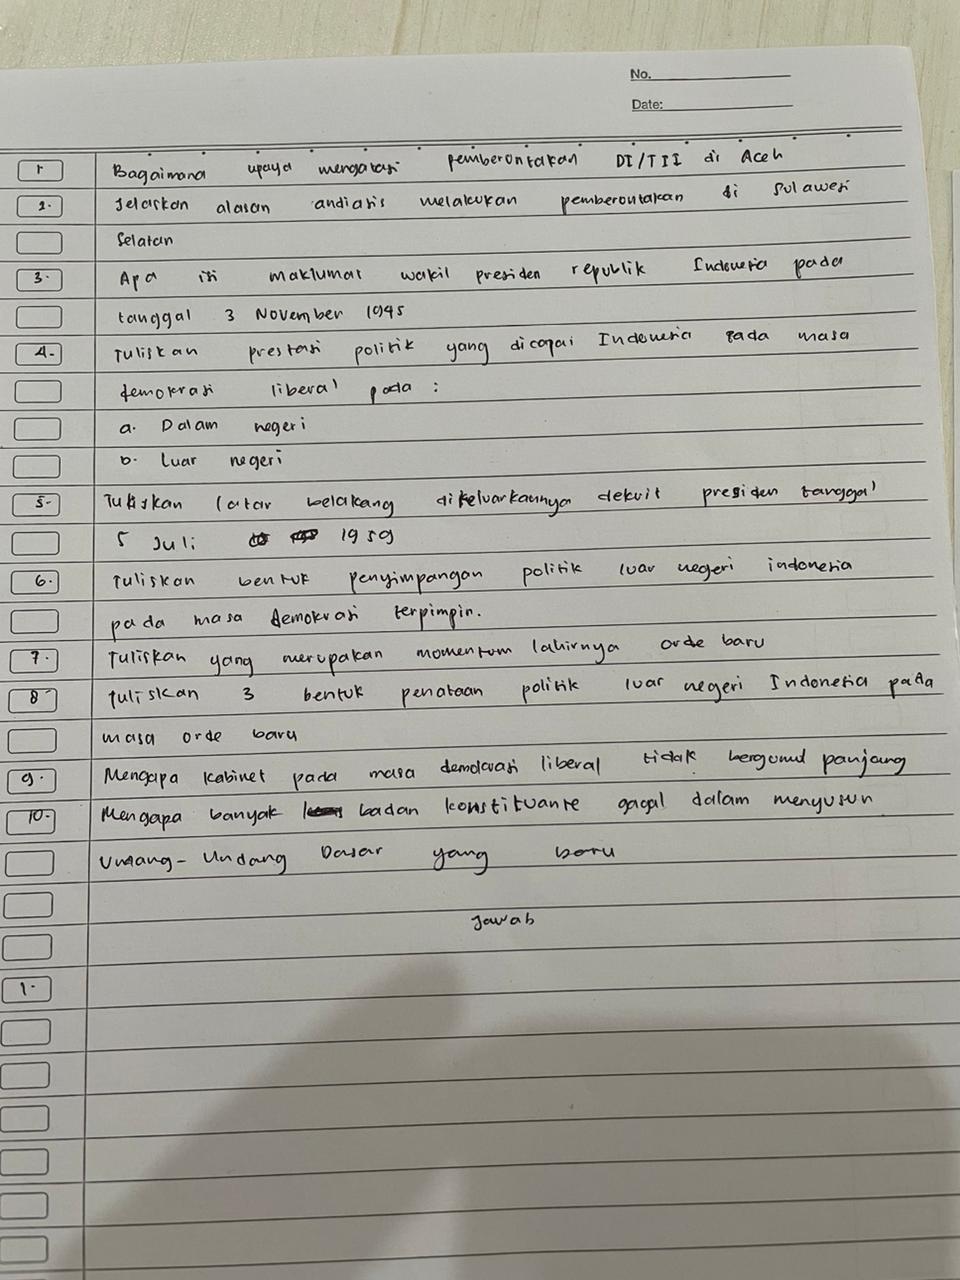 No.
Date:
1 Bagaimana upaya mengatasi pemberontakan DI/TII di Aceh
2. Jelaskan alasan andiazis melakukan pemberontakan di Sulawesi
Selatan
3. Apa isi maklumat wakil presiden republik Indonesia pada
tanggal 3 November 1945
4. Tuliskan prestasi politik yang dicapai Indonesia pada masa
demokrasi liberal pada :
a. Dalam negeri
b. Luar negeri
5. Tuliskan latar belakang dikeluarkannya dekrit presiden tanggal
5 Juli 1959
6. Tuliskan bentuk penyimpangan politik luar negeri indonesia
pada masa demokrasi terpimpin.
7. Tuliskan yang merupakan momentum lahirnya orde baru
8 Tuliskan 3 bentuk penataan politik luar negeri Indonesia pada
masa orde baru
9. Mengapa kabinet pada masa demokrasi liberal tidak berumur panjang
10. Mengapa banyak badan konstituante gagal dalam menyusun
Undang-Undang Dasar yang baru
Jawab
1.